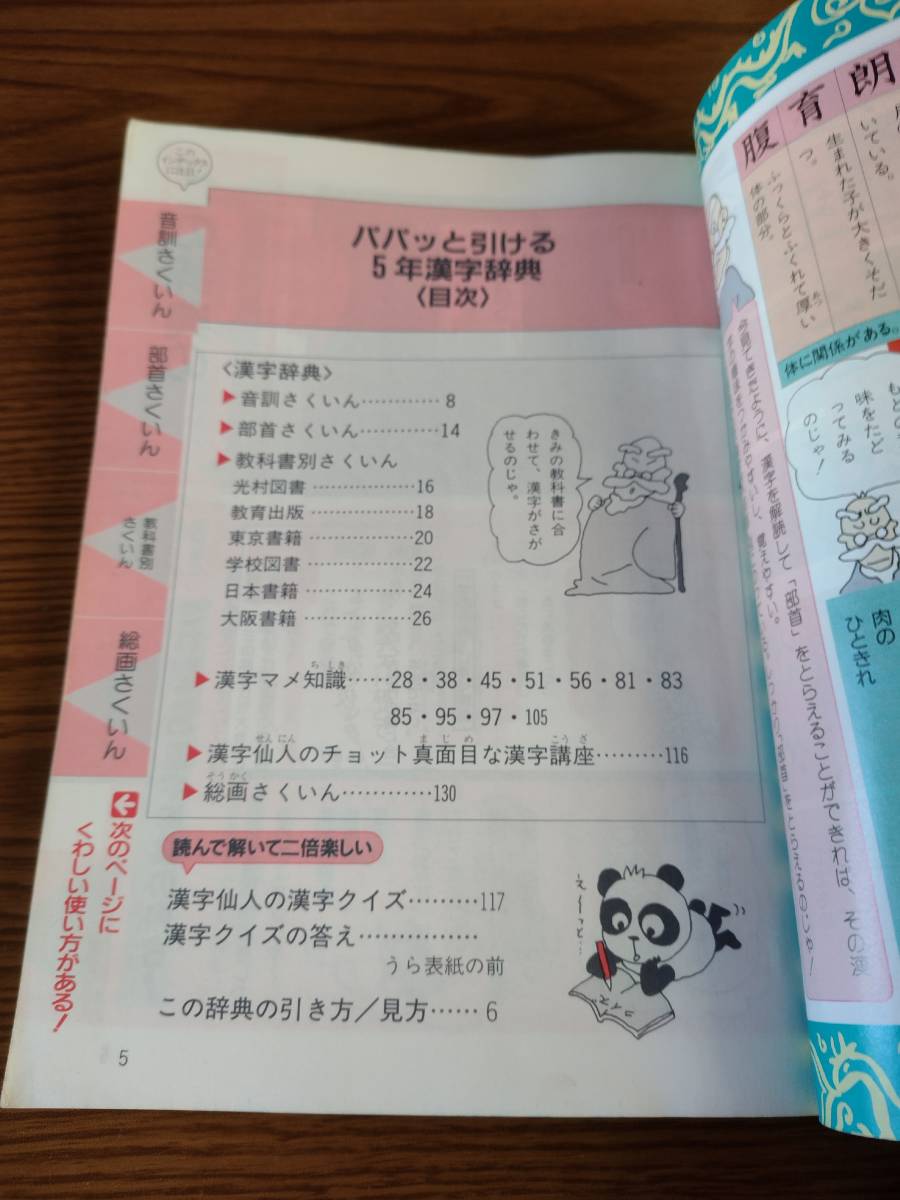 この
インデックス
に注目!
音訓さくいん
部首さくいん
教科書別
さくいん
総画さくいん
次のページに
くわしい使い方がある!
パパッと引ける
5年漢字辞典
〈目次〉
〈漢字辞典〉
▶音訓さくいん…………8
▶部首さくいん…………14
▶教科書別さくいん
光村図書……………16
教育出版……………18
東京書籍……………20
学校図書……………22
日本書籍……………24
大阪書籍……………26
きみの教科書に合
わせて、漢字がさが
せるのじゃ。
▶漢字マメ知識……28・38・45・51・56・81・83
ちしき
85・95・97・105
▶漢字仙人のチョット真面目な漢字講座………116
せんにん
まじめ
こうざ
▶総画さくいん…………130
そうかく
読んで解いて二倍楽しい
漢字仙人の漢字クイズ………117
漢字クイズの答え……………
うら表紙の前
この辞典の引き方/見方……6
え〜っと…
クイズ
5
朗
いている。
育
生まれた子が大きくそだ
つ。
腹
ふっくらとふくれて厚い
あつ
体の部分。
体に関係がある。
味をたど
ってみる
のじゃ!
肉の
ひときれ
今見てきたように、漢字を解読して「部首」をとらえることができれば、その漢